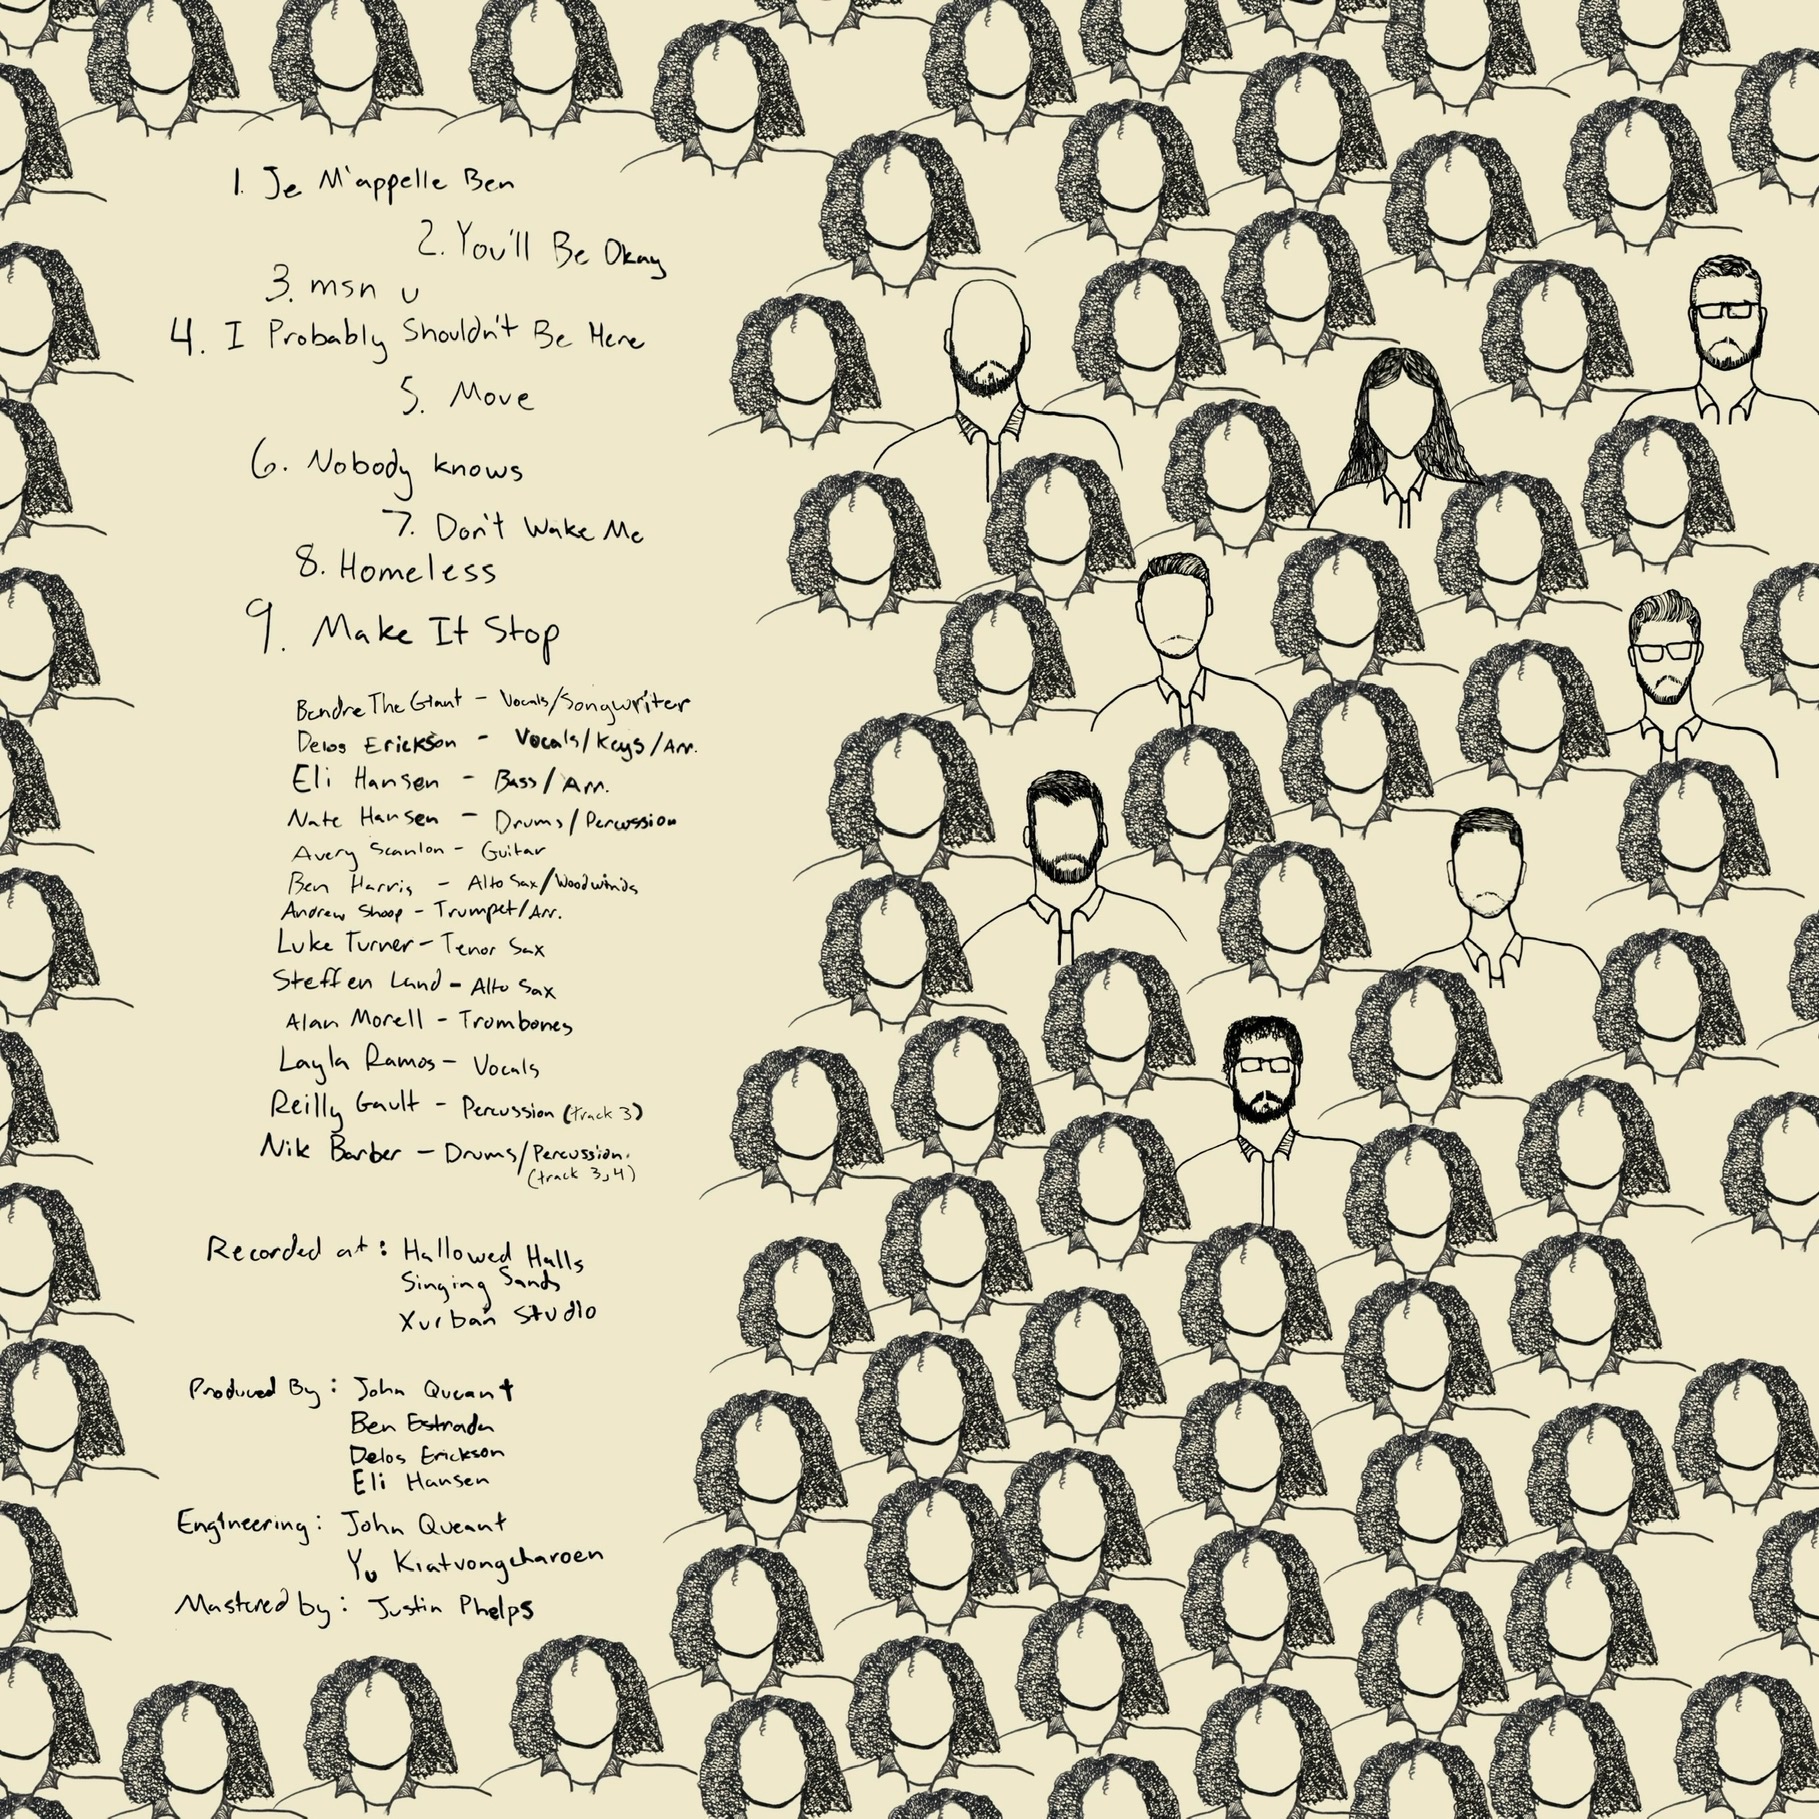 1. Je M'appelle Ben
2. You'll Be Okay
3. msn u
4. I Probably Shouldn't Be Here
5. Move
6. Nobody knows
7. Don't Wake Me
8. Homeless
9. Make It Stop
Bendre The Giant - Vocals/Songwriter
Delos Erickson - Vocals/Keys/Arr.
Eli Hansen - Bass/Arr.
Nate Hansen - Drums/Percussion
Avery Scanlon - Guitar
Ben Harris - Alto Sax/Woodwinds
Andrew Shoop - Trumpet/Arr.
Luke Turner - Tenor Sax
Steffen Land - Alto Sax
Alan Morell - Trombones
Layla Ramos - Vocals
Reilly Gault - Percussion (track 3)
Nik Barber - Drums/Percussion.
(track 3,4)
Recorded at: Hallowed Halls
Singing Sands
Xurban Studio
Produced By: John Queant
Ben Estrada
Delos Erickson
Eli Hansen
Engineering: John Queant
Yu Kiatvongcharoen
Mastered by: Justin Phelps